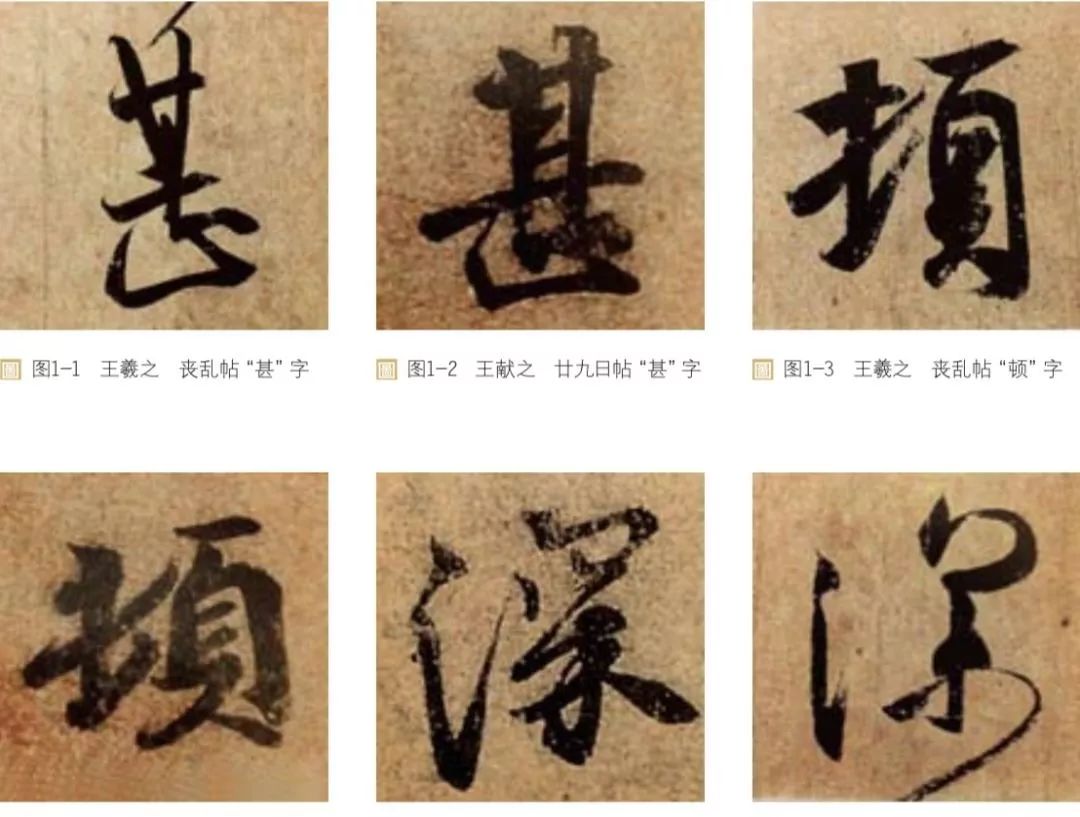 甚 甚 頓
圖 图1-1 王羲之 丧乱帖“甚”字 圖 图1-2 王献之 廿九日帖“甚”字 圖 图1-3 王羲之 丧乱帖“顿”字
頓 深 深